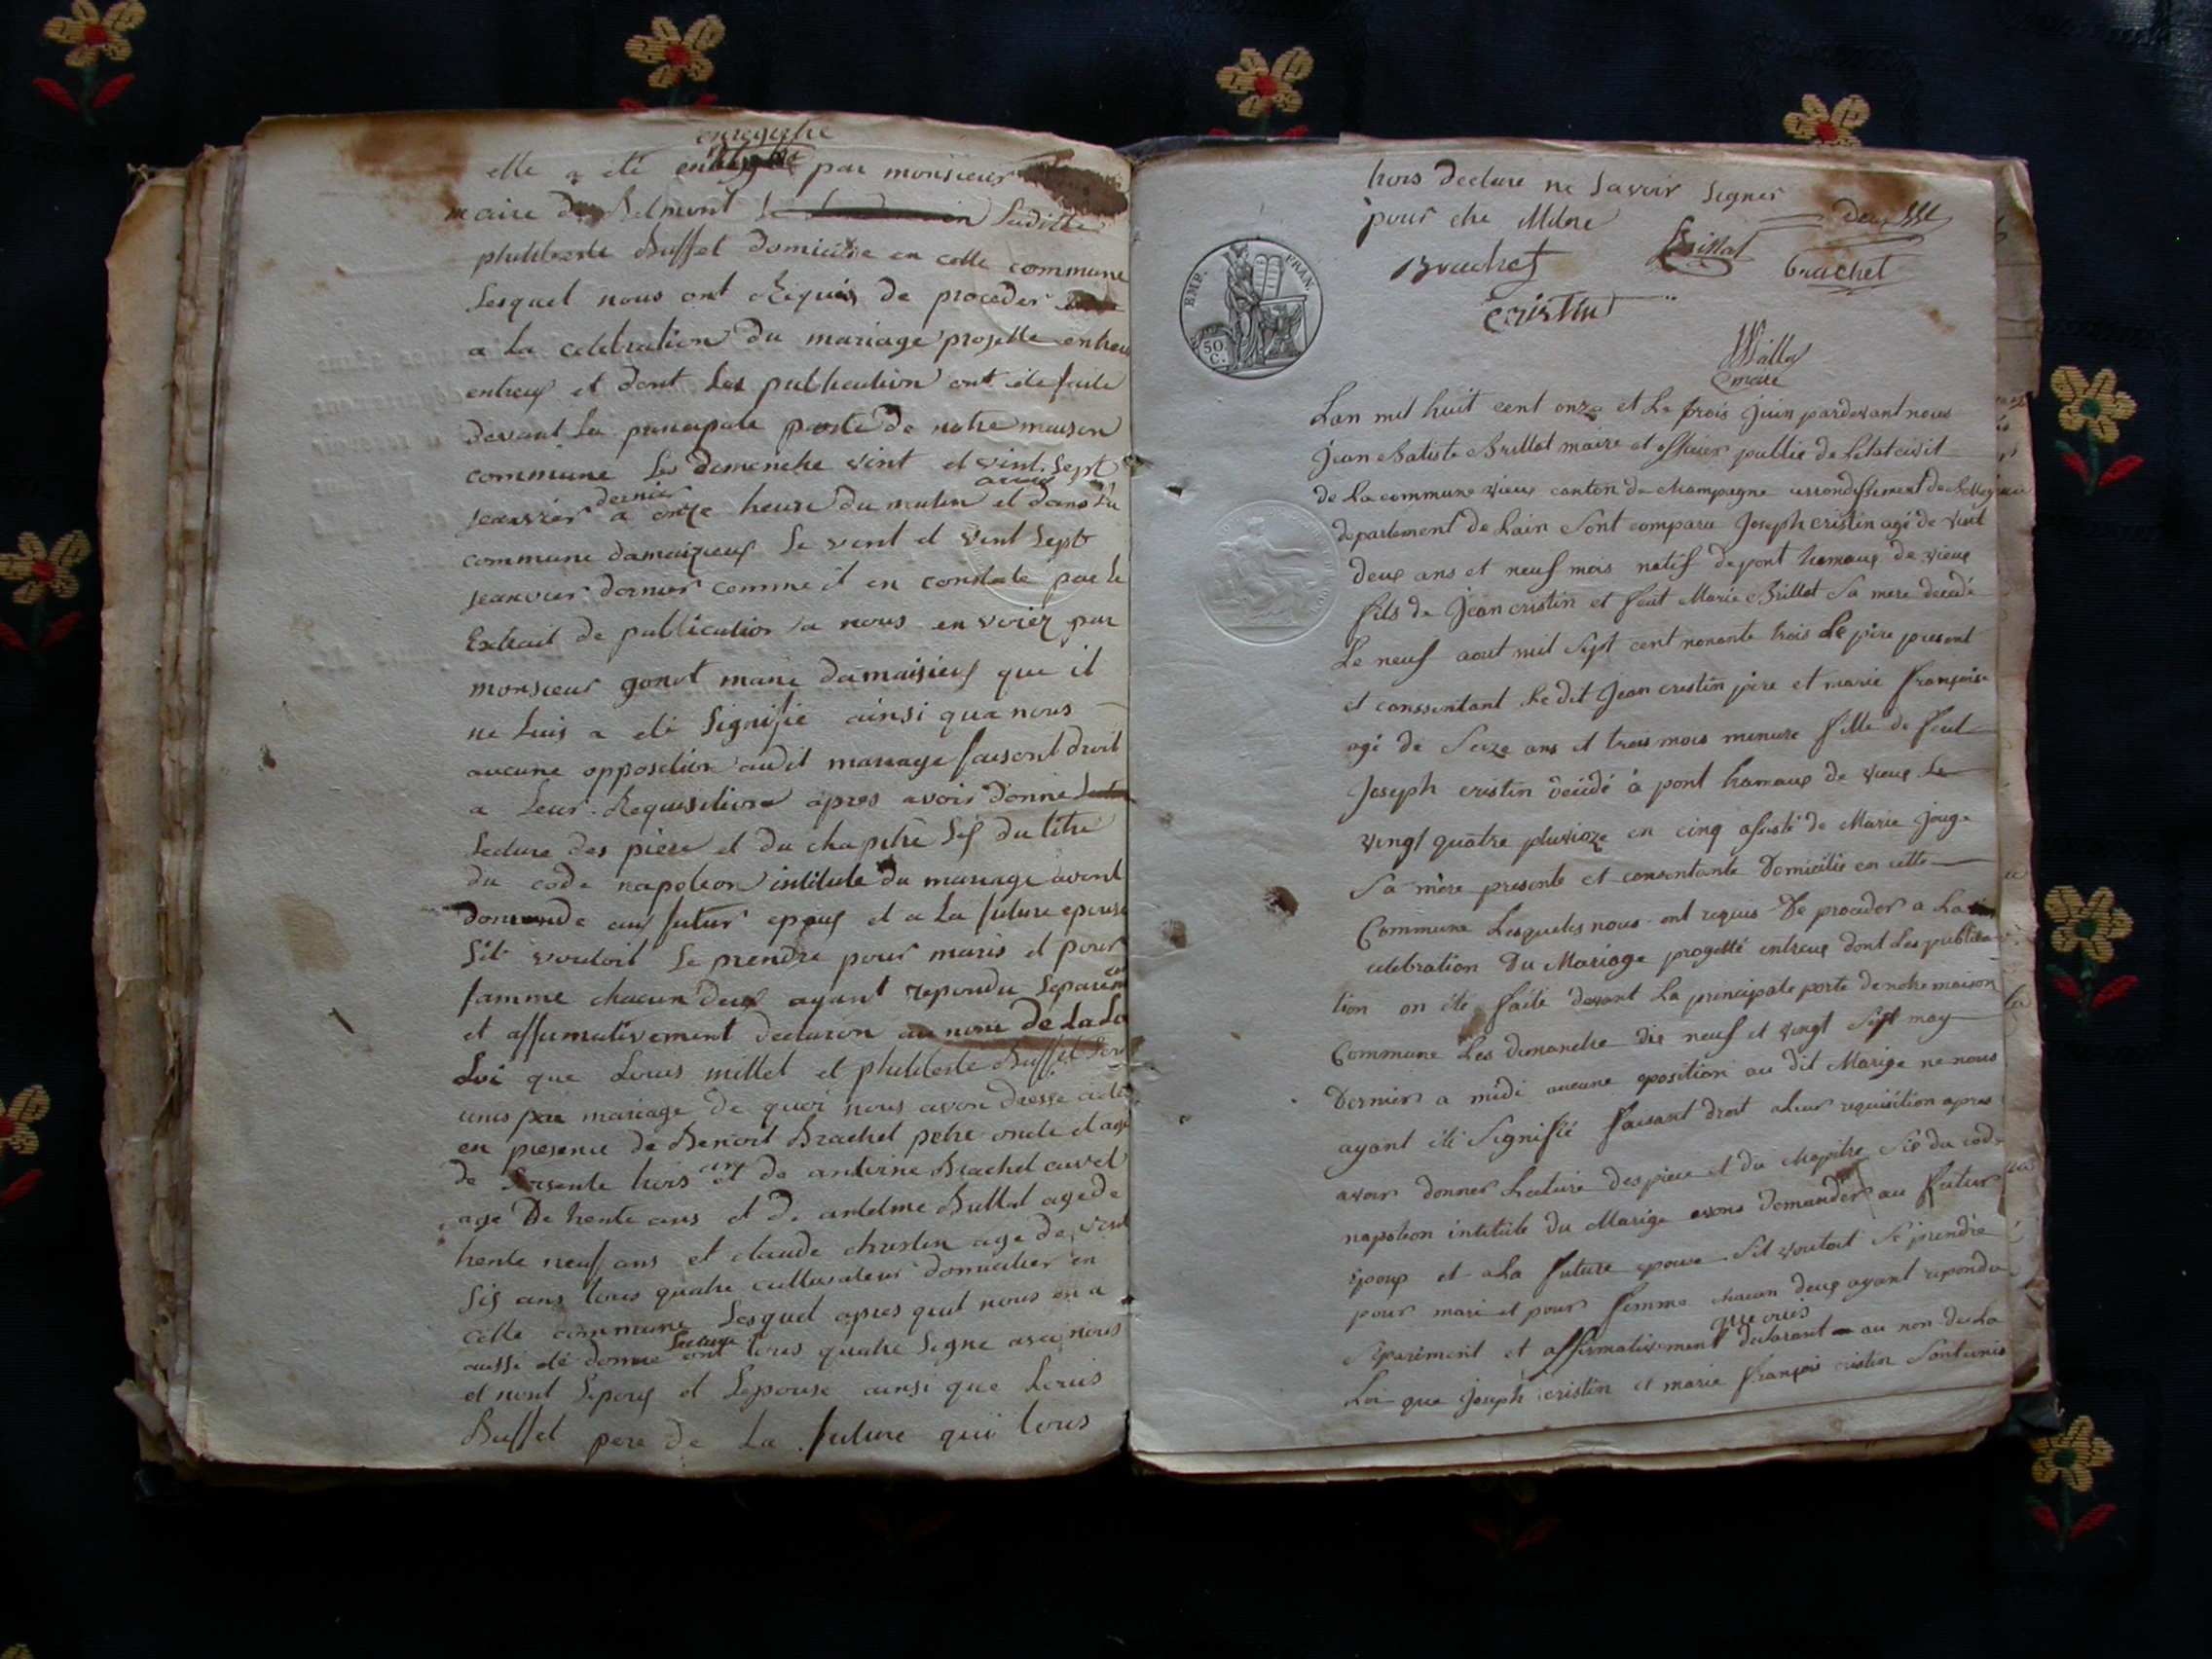 enregistré
elle a été par monsieur
maire de Belmont Le Laditte
philiberte Buffet domicilie en cette commune
Lesquel nous ont Requis de proceder
a la celebration du mariage projette entreu
entreux et dont Les publication ont été faite
devant La principale porte de notre maison
commune Les demenche vint et vint Sept
jeanvier dernier a onze heure du matin et dans la
commune damaizieux Le vent et vint Sept
jeanvier dernier comme il en constate par Le
Extrait de publication a nous envoiez par
monsieur gonet maire damaisieux que il
ne Luis a été Signifié ainsi qua nous
aucune opposition audit mariage faisont droit
a Leur Requisition apres avoir donné
Lecture des pièce et du chapitre Six du titre
du code napoleon intitulé du mariage avont
domande aux futur epoux et a La future epouse
Sil vouloit Se prendre pour maris et pour
famme chacun deux ayant repondu Separem
et affirmativement declaron au nom de La Loi
Loi que Louis millet et philiberte Buffet Son
unis par mariage de quoi nous avon dresse acte
en presence de Benoit Brachet pere oncle et age
de Soisente trois ans et de antoine Brachet
age De trente ans et de antelme Brillat age de
trente neuf ans et claude christin age de vint
Six ans tous quatre cultivateur domicilier en
cette commune Lesquel apres quil nous en a
aussi été donné Lecture ont tous quatre Signe avec nous
et nont Lepoux et Lepouse ainsi que Louis
Buffet pere de La future qui tous
trois declare ne Savoir Signer
pour
Brachet Brillat Brachet
cristin
maire
EMP. FRAN.
50 C.
Lan mil huit cent onze et Le trois juin pardevant nous
Jean Batiste Brillat maire et officier public de Letat civil
de La commune vieux canton de Champagne arrondissement de Belley
departement de Lain Sont comparu Joseph cristin agé de vint
deux ans et neuf mois natif de pont hamaux de vieux
fils de Jean cristin et feut Marie Brillat Sa mere décédé
Le neuf aout mil Sept cent nonante trois Le père present
et conssentant Le dit Jean cristin père et marie françoise
agé de Seize ans et trois mois mineure fille de feut
Joseph cristin décidé à pont hamaux de vieux Le
vingt quatre pluvioze en cinq asisté de Marie Jouge
Sa mère presente et consentante Domicilié en cette
Commune Lesquels nous ont requis De proceder a La
celebration Du Mariage progetté entreux dont Les publica
tion on été faite devant La principale porte de notre maison
Commune Les dimanche dix neuf et vingt Sept may
Dernier a midi aucune oposition au dit Marige ne nous
ayant été Signifié faisant droit aLeur requisition apres
avoir donner Lecture des pièce et du chapitre Six du code
napoleon intitule du Marige avons demander au futur
époux et aLa future epouse Sil vouloit Se prendre
pour mari et pour femme chacun deux ayant repondu
Séparément et affirmativement declarant au non de La
Loi que Joseph cristin et marie françois cristin Sont unis